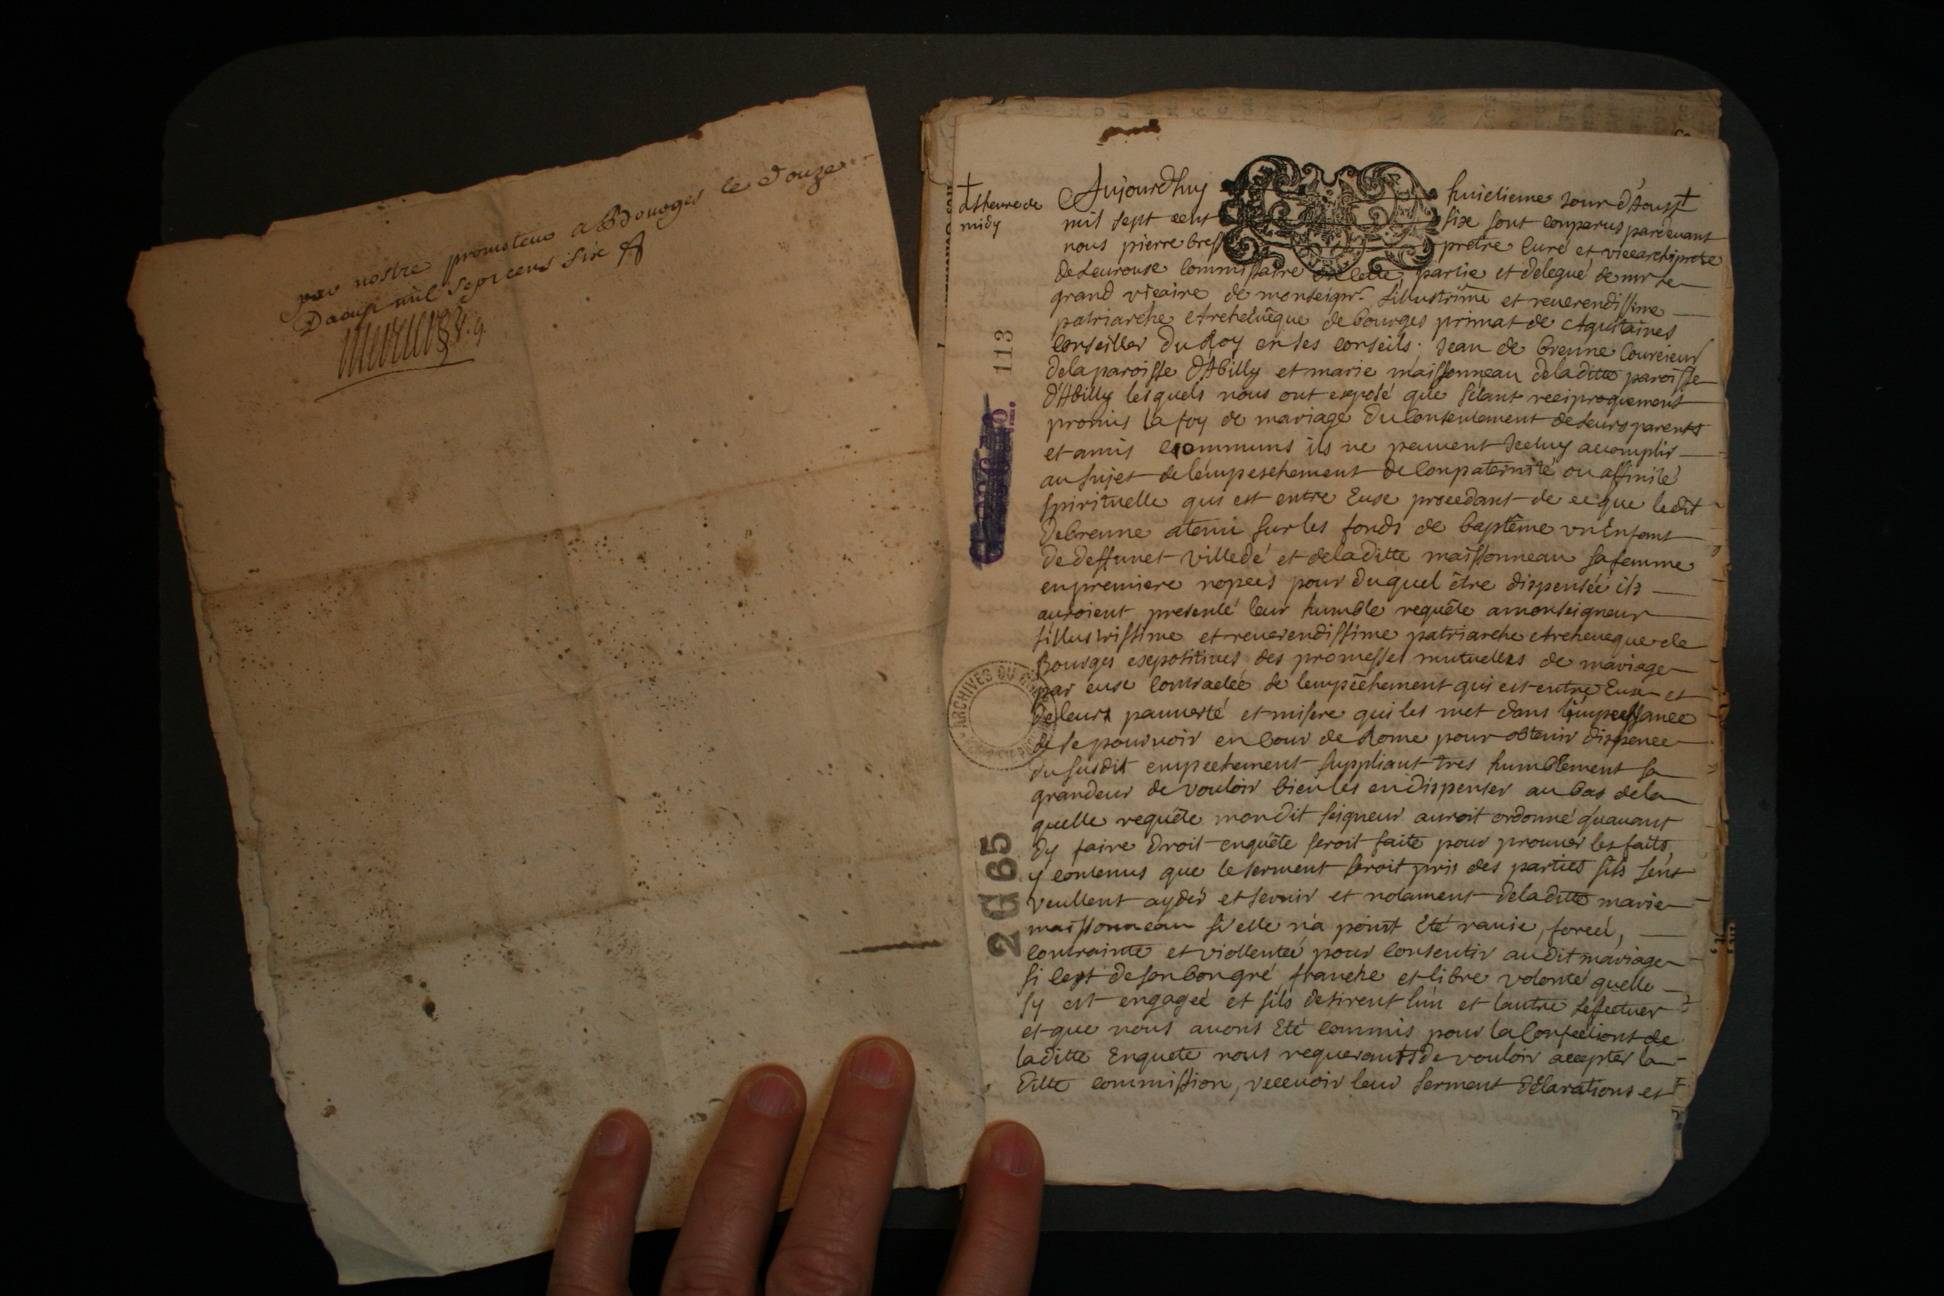 par nostre promoteur a Bourges le douze
Daoust mil sept cens six
+
a lheure de
midy
Aujourdhuy huictieme Jour d'Aoust +
mil sept cent six sont comparus pardevant
nous pierre pretre curé et vicearchiprete
de Leurouse commissaire en cette partie et delegué de mr le
grand vicaire de monseignr. l'illustrime et reuerendissime
patriarche Archeuêque de bourges primat de Aquitaines
Conseiller Du Roy en ses conseils. Jean de brenne Couureieur
de la paroisse D'Abilly et marie maissonneau de la ditte paroisse
d'Abilly lesquels nous ont exposé que s'étant reciproquement
promis la foy de mariage du Consentement de Leurs parents
et amis communs ils ne peuuent Iceluy accomplir
au sujet de l'empeschement de Conpaternité ou affinité
spirituelle qui est entre Euse procedant de ce que ledit
Debrenne a tenu sur les fonds de baptême vn Enfant
de deffunct Villedé et de la ditte maissonneau sa femme
en premiere nopces pour duquel être dispensée ils
auroient presenté leur humble requête a monseigneur
l'illustrissime et reuerendissime patriarche archeueque de
Bourges expositiues des promesses mutueles de mariage
par euse Contractée de l'empêchement qui est entre Eux et
de leurs pauureté et misere qui les met dans l'impuissance
de se pouruoir en Cour de Rome pour obtenir dispence
du susdit empeschement suppliant tres humblement sa
grandeur de vouloir bien les en dispenser au bas de la
quelle requête mondit seigneur auroit ordonné quauant
dy faire Droit enquête seroit faite pour prouuer les faits
y contenus que le serment seroit pris des parties s'ils s'ent
veullent ayder et seruir et notament de la ditte marie
maissonneau si elle n'a point Eté rauie, forcée,
contrainte et viollentée pour Consentir audit mariage
si c'est de son bon gré franche et libre volonté quelle
s'y est engagée et s'ils desirent l'un et l'autre l'éfectuer
et que nous auons Eté commis pour la Confections de
la ditte Enquete nous requerants de vouloir accepter la
ditte commission, receuoir leur serment déclarations et
113
2G65
ARCHIVES DU